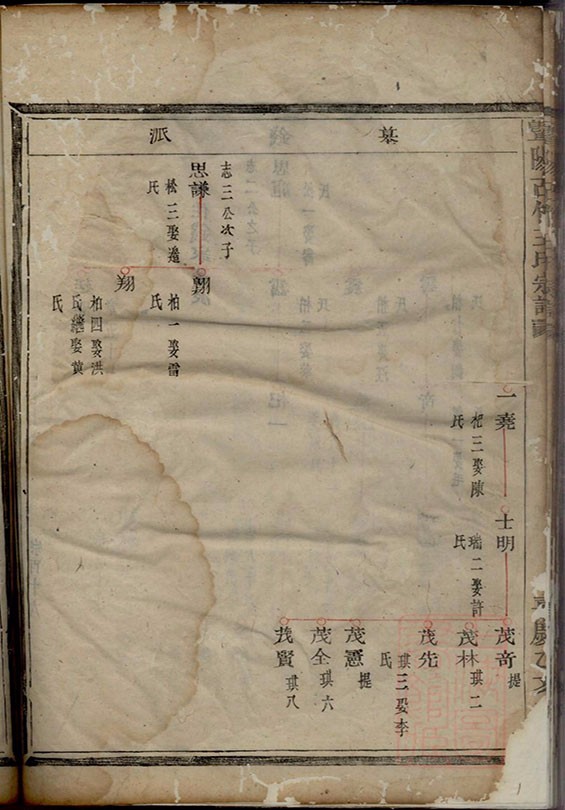 基派
一堯
杞三娶陳
氏
士明
瑞二娶許
氏
茂奇
提
茂林
琪二
茂先
琪三娶李
氏
茂憲
提
茂全
琪六
茂賢
琪八
志三公次子
思謙
松三娶
氏
翔
柏一娶雷
氏
翔
柏四娶洪
氏繼娶黄
氏